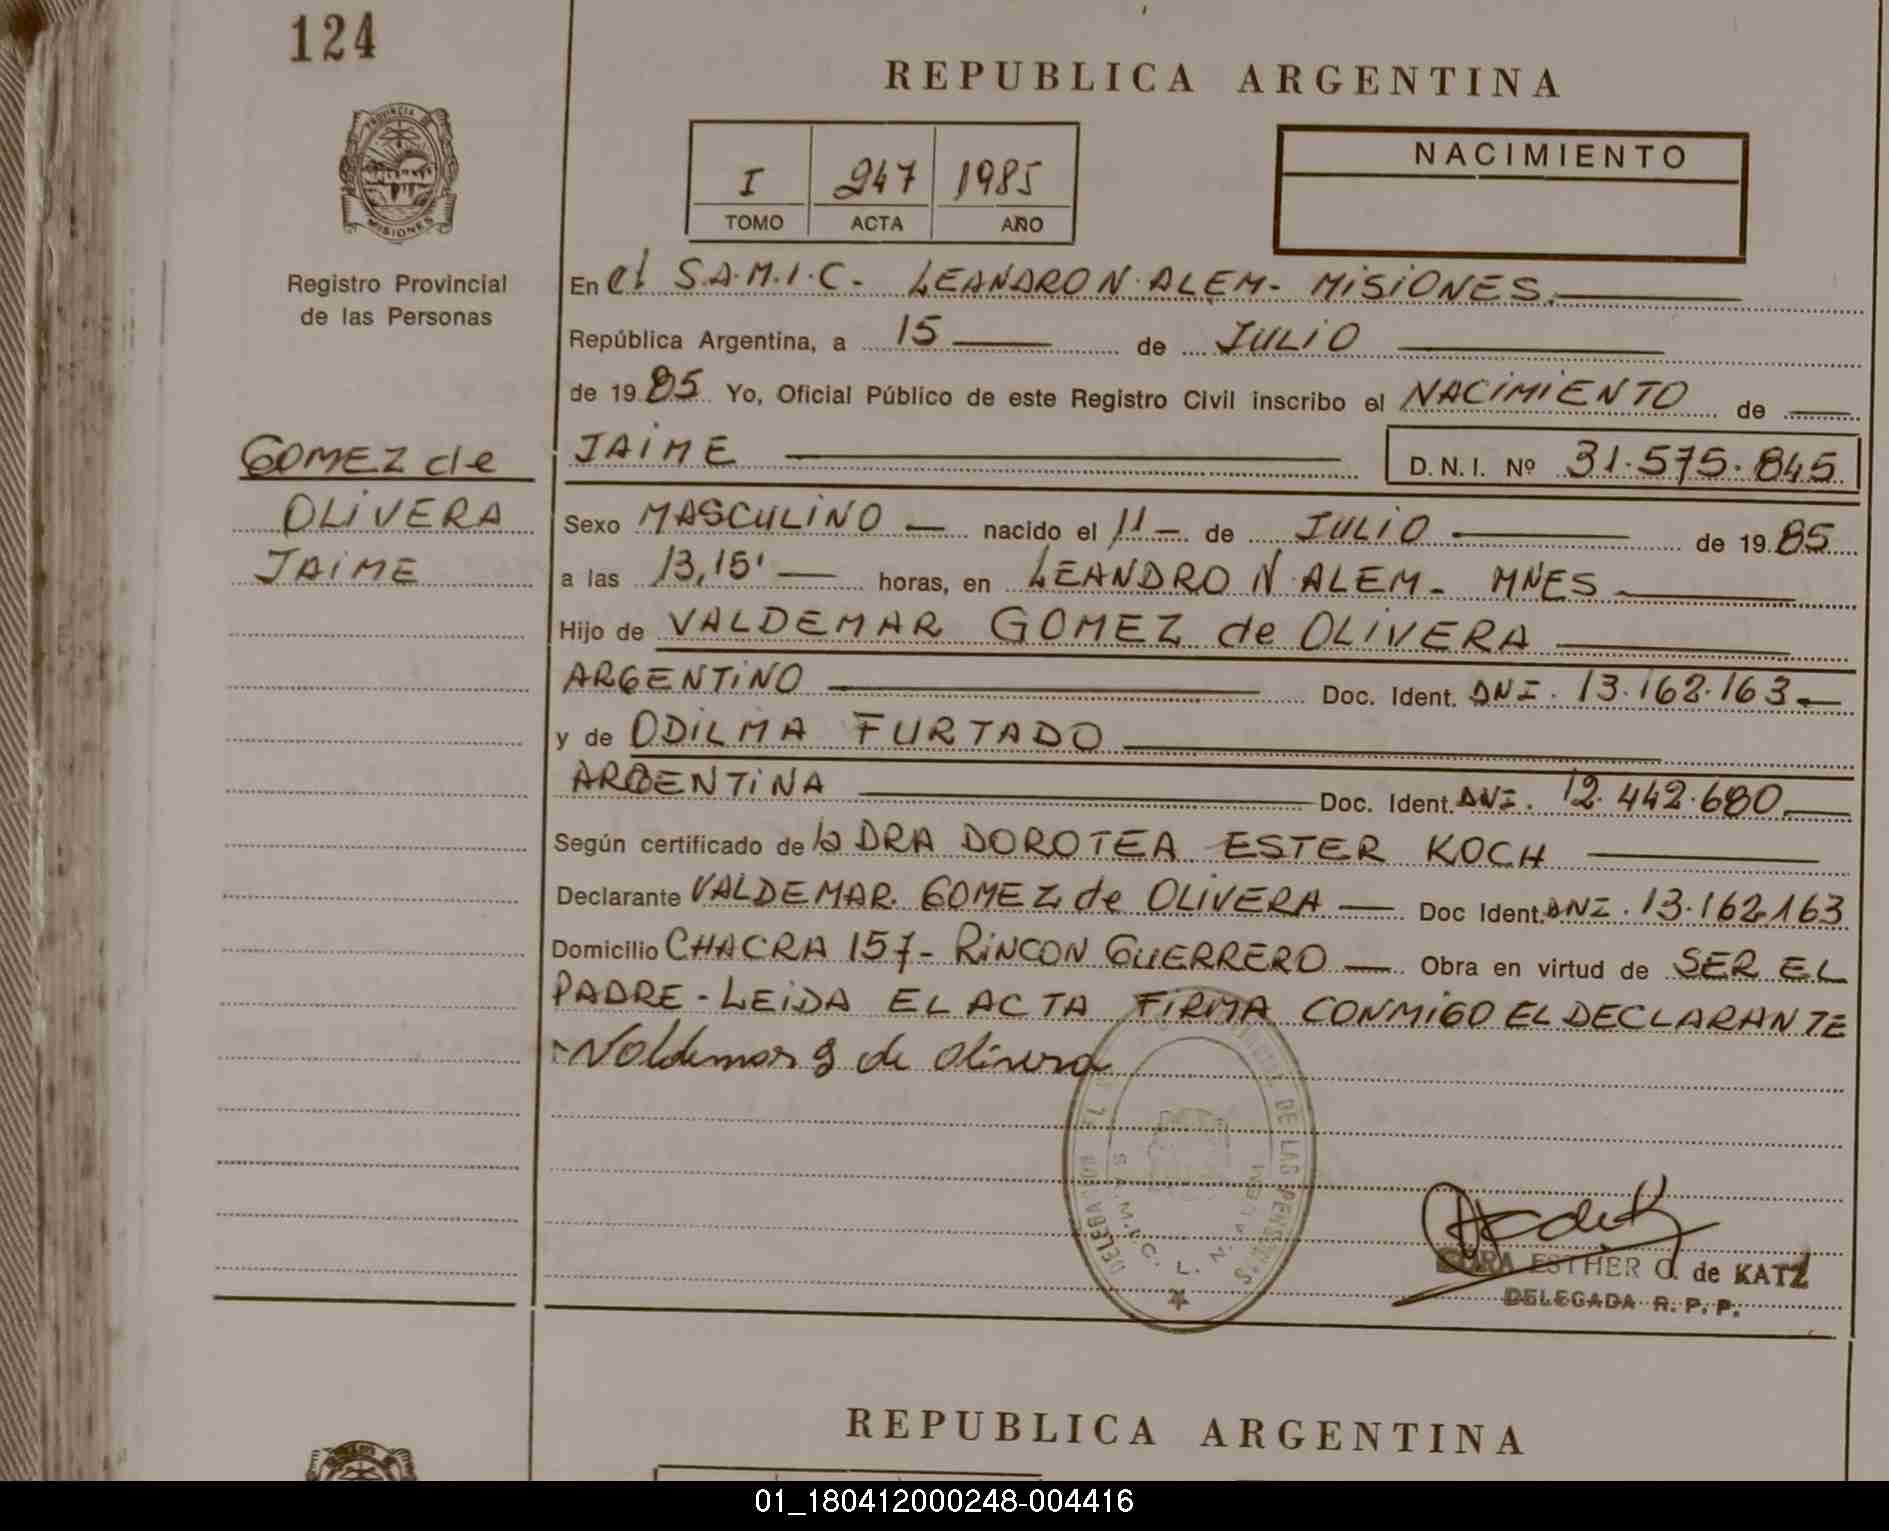 124
REPUBLICA ARGENTINA
PROVINCIA DE
MISIONES
Registro Provincial
de las Personas
I 247 1985
TOMO ACTA AÑO
NACIMIENTO
En el S.A.M.I.C. LEANDRO N. ALEM - MISIONES.
República Argentina, a 15 de JULIO
de 1985 Yo, Oficial Público de este Registro Civil inscribo el NACIMIENTO de
GOMEZ de
OLIVERA
JAIME
JAIME D. N. I. Nº 31.575.845
Sexo MASCULINO nacido el 11 de JULIO de 1985
a las 13,15' horas, en LEANDRO N. ALEM - MNES
Hijo de VALDEMAR GOMEZ de OLIVERA
ARGENTINO Doc. Ident. DNI. 13.162.163
y de ODILMA FURTADO
ARGENTINA Doc. Ident. DNI. 12.442.680
Según certificado de la DRA DOROTEA ESTER KOCH
Declarante VALDEMAR GOMEZ de OLIVERA Doc Ident. DNI. 13.162.163
Domicilio CHACRA 157 - RINCON GUERRERO Obra en virtud de SER EL
PADRE - LEIDA EL ACTA FIRMA CONMIGO EL DECLARANTE
Valdemar g de olivera
DE LAS PERSONAS
S.A.M.I.C. L. N. ALEM
ESTHER G. de KATZ
DELEGADA R. P. P.
REPUBLICA ARGENTINA
01_180412000248-004416